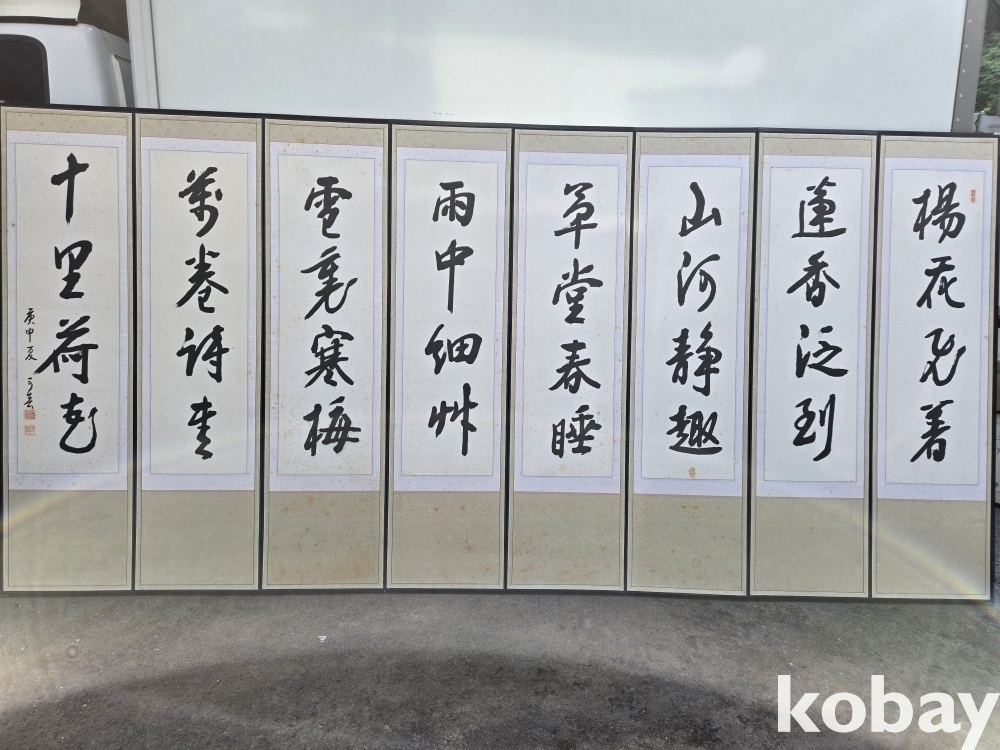 楊花飛着
蓮香泛到
山河静趣
草堂春睡
雨中細艸
雪裏寒梅
萬卷詩書
十里荷花
庚申夏
kobay